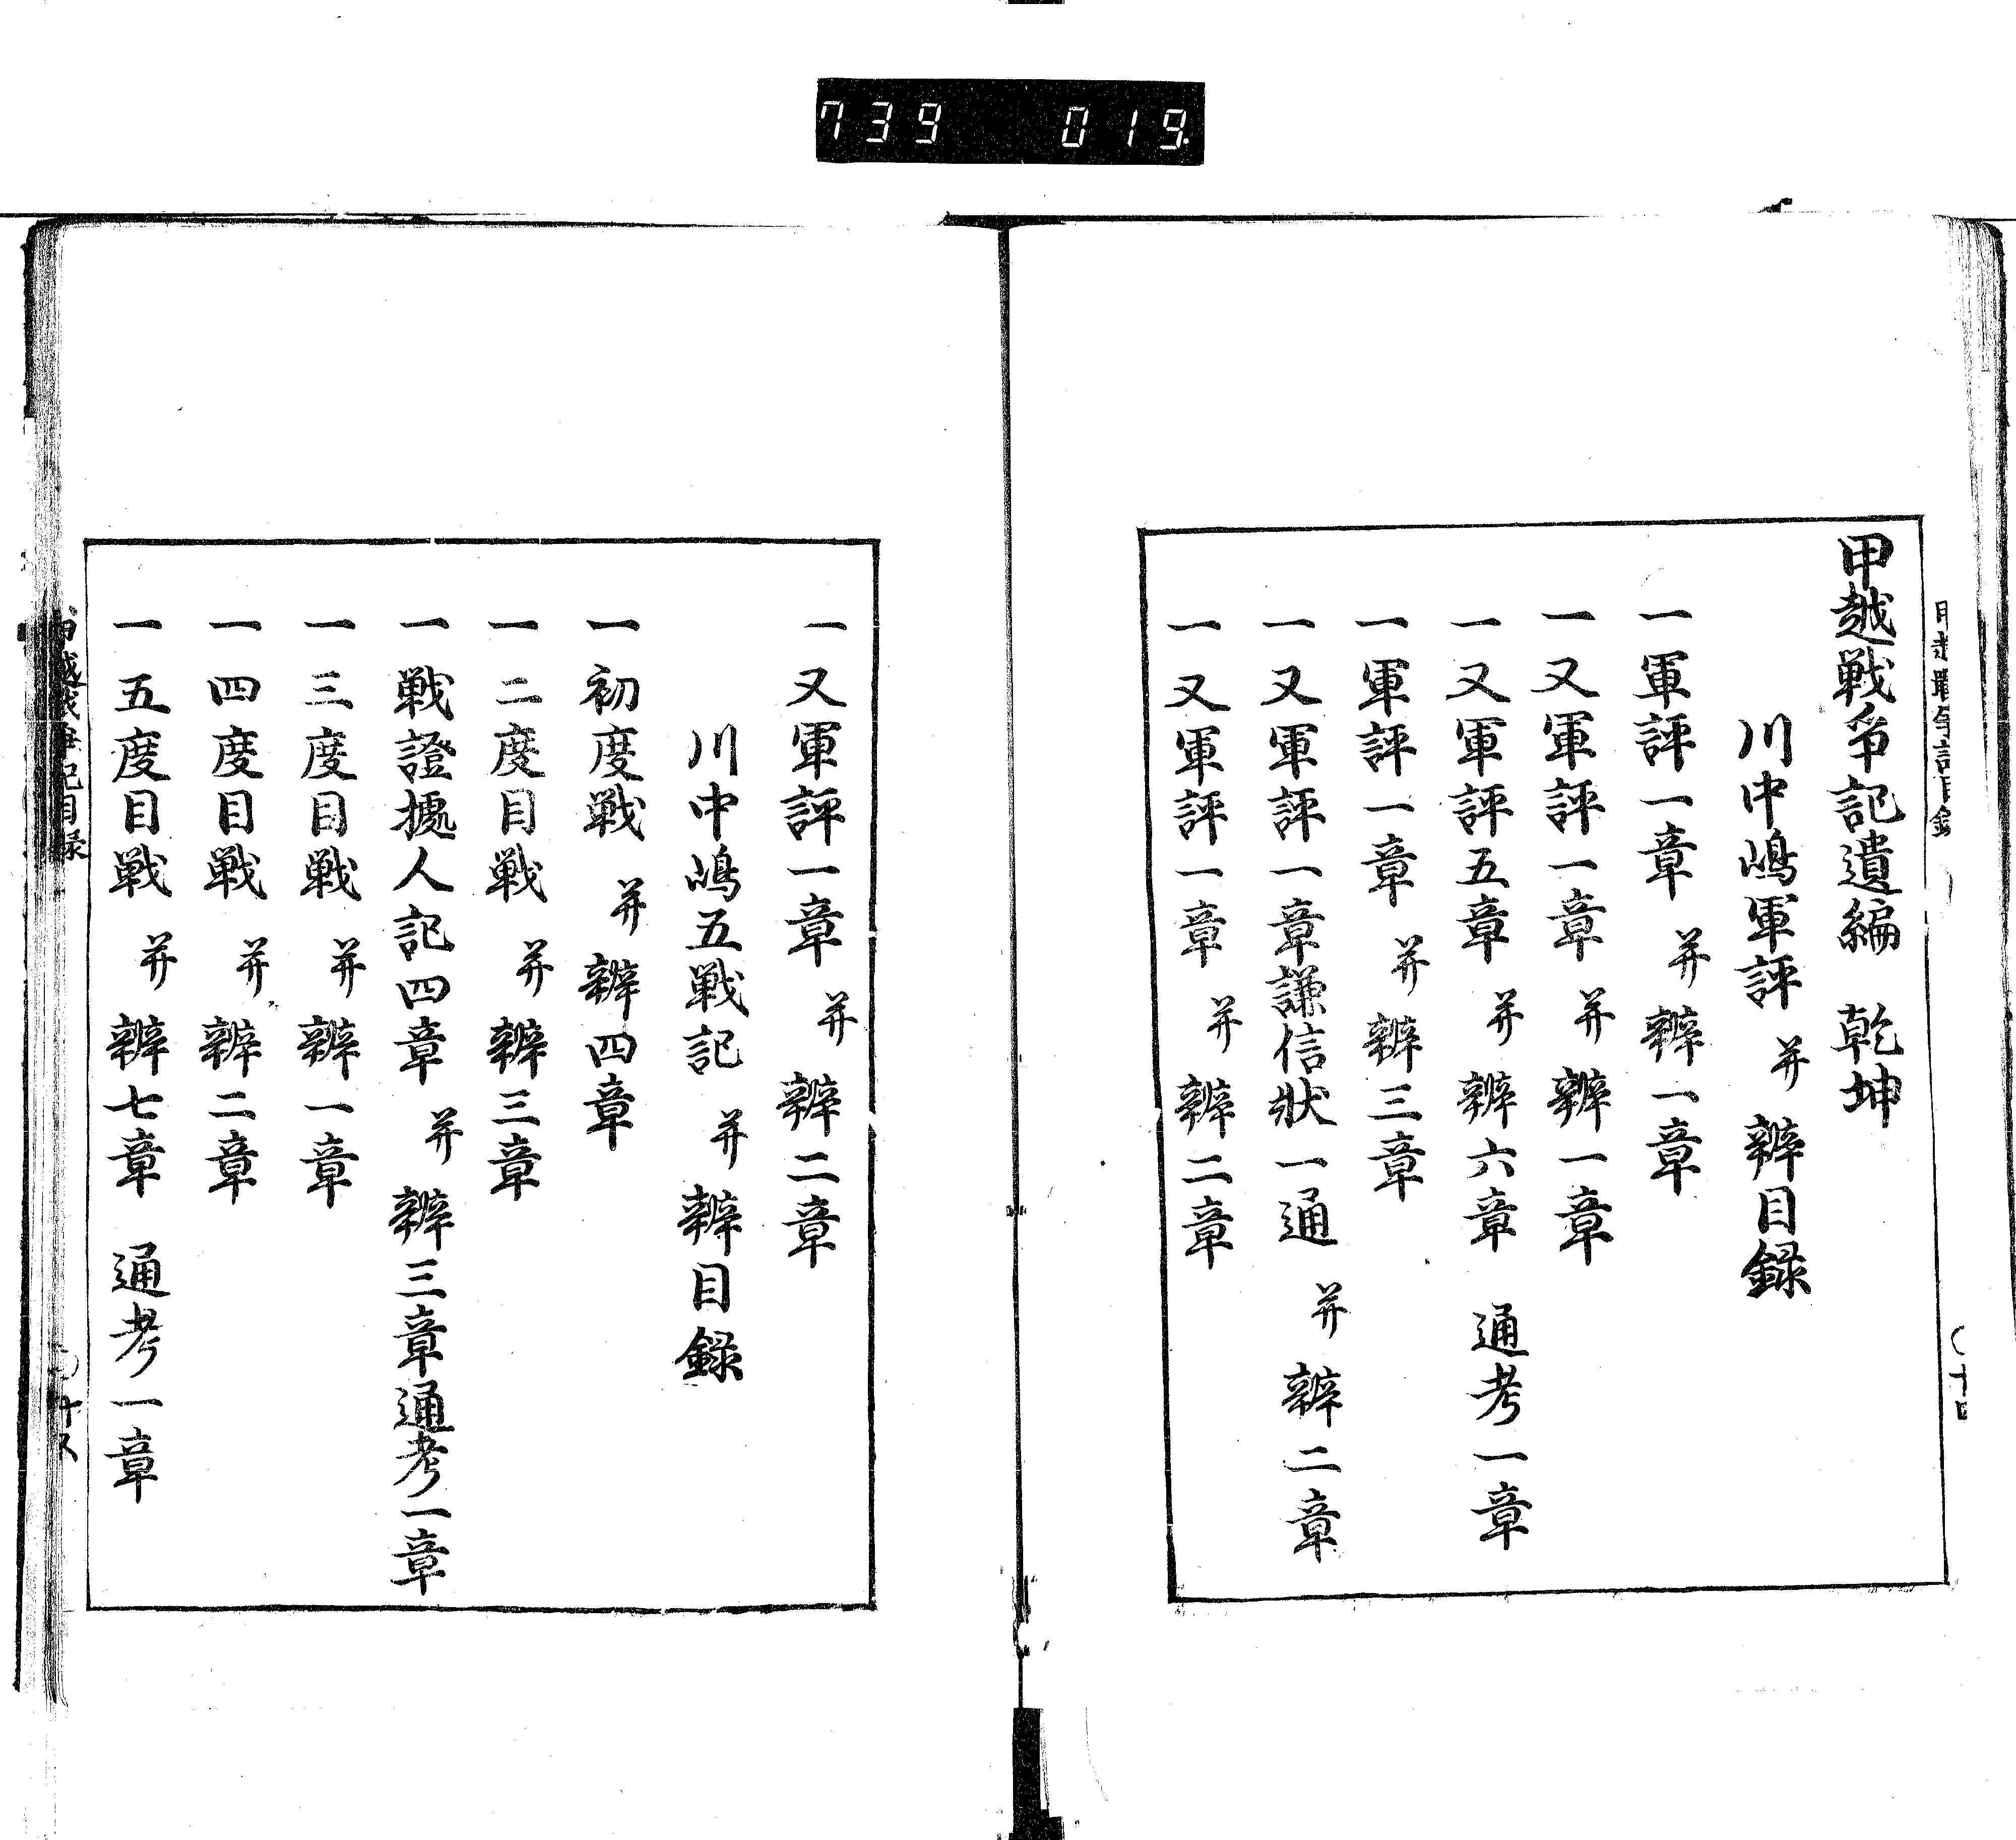 739 019
甲越戦争記遺編 乾坤
川中嶋軍評 并 辨目録
一 軍評一章 并 辨一章
一 又軍評一章 并 辨一章
一 又軍評五章 并 辨六章 通考一章
一 軍評一章 并 辨三章
一 又軍評一章謙信狀一通 并 辨二章
一 又軍評一章 并 辨二章
一 又軍評一章 并 辨二章
川中嶋五戦記 并 辨目録
一 初度戦 并 辨四章
一 二度目戦 并 辨三章
一 戦證據人記四章 并 辨三章通考一章
一 三度目戦 并 辨一章
一 四度目戦 并 辨二章
一 五度目戦 并 辨七章 通考一章